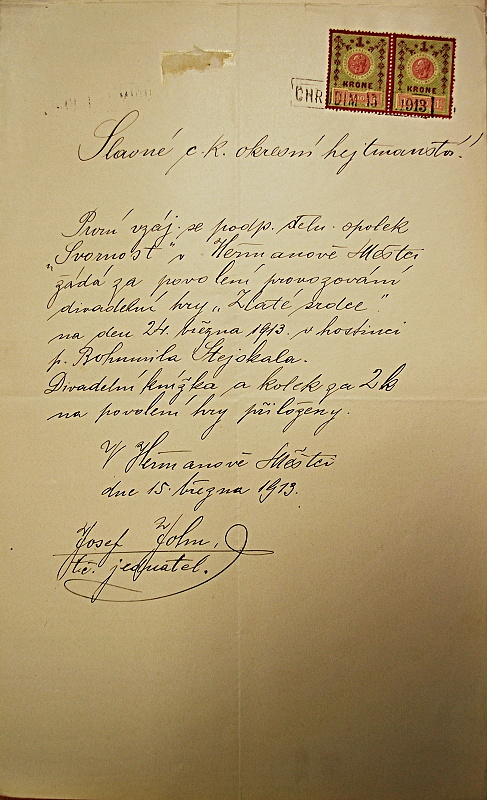 1 1
KRONE KRONE
CHRUDIM 15 1913
Slavné c. k. okresní hejtmanství!
První vzáj. se podp. děln. spolek
„Svornost" v Heřmanově Městci
žádá za povolení provozování
divadelní hry „Zlaté srdce"
na den 24. března 1913. v hostinci
p. Bohumila Stejskala.
Divadelní knížka a kolek za 2 k
na povolení hry přiloženy.
V Heřmanově Městci
dne 15. března 1913.
Josef John,
tč. jednatel.